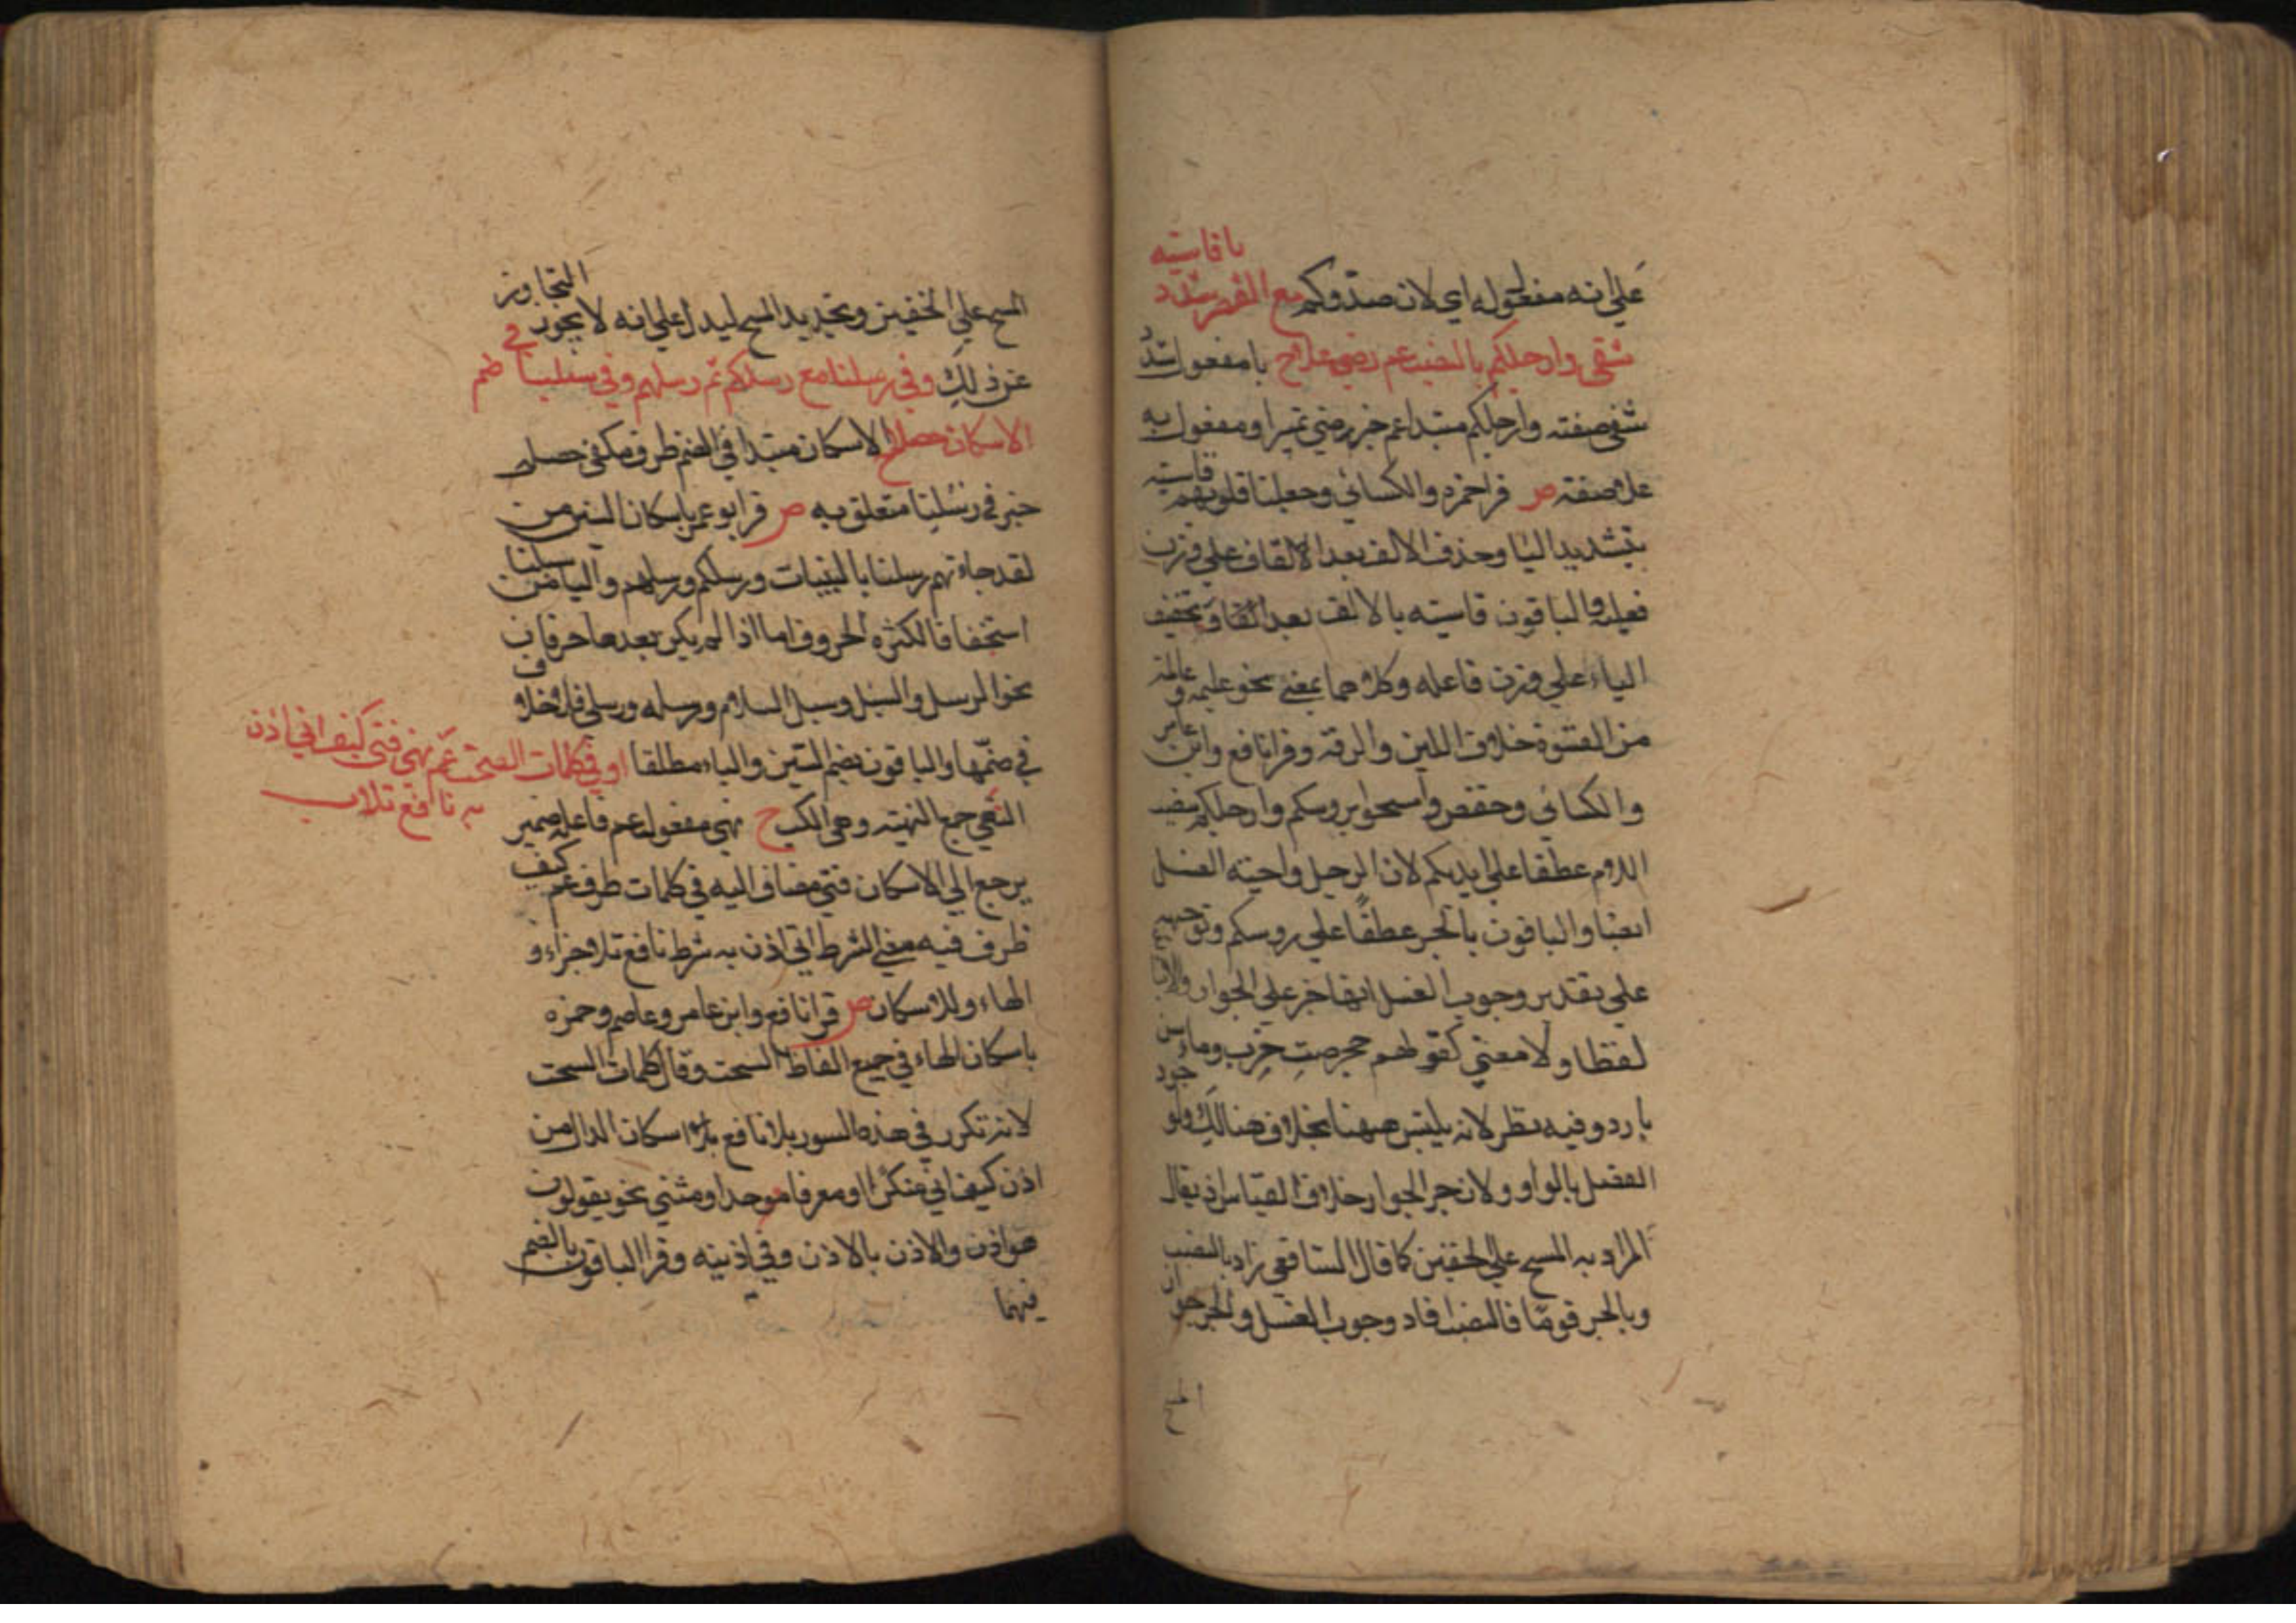 على انه مفعول له اي لان صدوكم مع القصر شدد ياقاسيه
شفى وارجلكم بالنصب عم رضى علا ح يا مفعول شدد
شفى صفته وارجلكم مبتدا عم خبر رضي تميزا ومفعول به
علا صفته ص قرا حمزه والكسائي وجعلنا قلوبهم قاسيته
بتشديد اليا وحذف الالف بعد الالقاف على وزن
فعيله والباقون قاسيته بالالف بعد القاف وتخفيف
الياء على وزن فاعله وكلاهما بمعنى نحو عليمه وعالمة
من القسوة خلاف اللين والرقه وقرا نافع وابن عامر
والكسائي وحفص وامسحوا بروسكم وارجلكم بنصب
اللام عطفا على ايديكم لان الرجل واجبته الغسل
ايضا والباقون بالجر عطفا على روسكم وتوجيه
على تقدير وجوب الغسل انها جر على الجوار
لفظا ولا معنى كقولهم حجر ضب خرب وماء شن
بارد وفيه نظر لانه يلتبس ههنا بخلاف هنالك ولو جود
الفصل بالواو ولان جر الجوار خلاف القياس اذ يقال
المراد به المسح على الخفين كما قال الشافعي زاد بالنصب
وبالجر قوما فالنصب افاد وجوب الغسل والجر جواز
المسح
المسح على الخفين وتحديد المسح ليدل على انه لا يجوز التجاوز
عن ذلك وفي رسلنا مع رسلكم ثم رسلهم وفي سبلنا في ضم
الاسكان حصلا ح الاسكان مبتدا في الضم ظرف مكفى حصلا
خبر في رسلنا متعلق به ص قرا ابو عمر باسكان السين من
لقد جاءتهم رسلنا بالبينات ورسلكم ورسلهم والبا من سبلنا
استخفافا لكثره الحروف اما اذا لم يكن بعدها حرفان
نحو الرسل والسبل وسبل السلام ورسله ورسلي فلا خلاف
في ضمها والباقون بضم السين والباء مطلقا وفي كلمات السحت عم نهى فتى كيف اتى اذن
به نافع تلا ب
النهى جمع النهيته وهي الكب ح نهى مفعول عم فاعله ضمير
يرجع الى الاسكان فتى مضاف اليه في كلمات ظرف عم كيف
ظرف فيه معنى الشرط اتى اذن به شرط نافع تلا جزاء و
الهاء وللاسكان ص قرا نافع وابن عامر وعاصم وحمزه
باسكان الهاء في جميع الفاظ السحت وقال كلمات السحت
لانه تكرر في هذه السور بلا نافع اسكان الدال من
اذن كيف اتى منكرا او معرفا موحدا ومثنى نحو يقولون
هو اذن والاذن بالاذن وفي اذنيه وقرا الباقون بالضم
فيهما